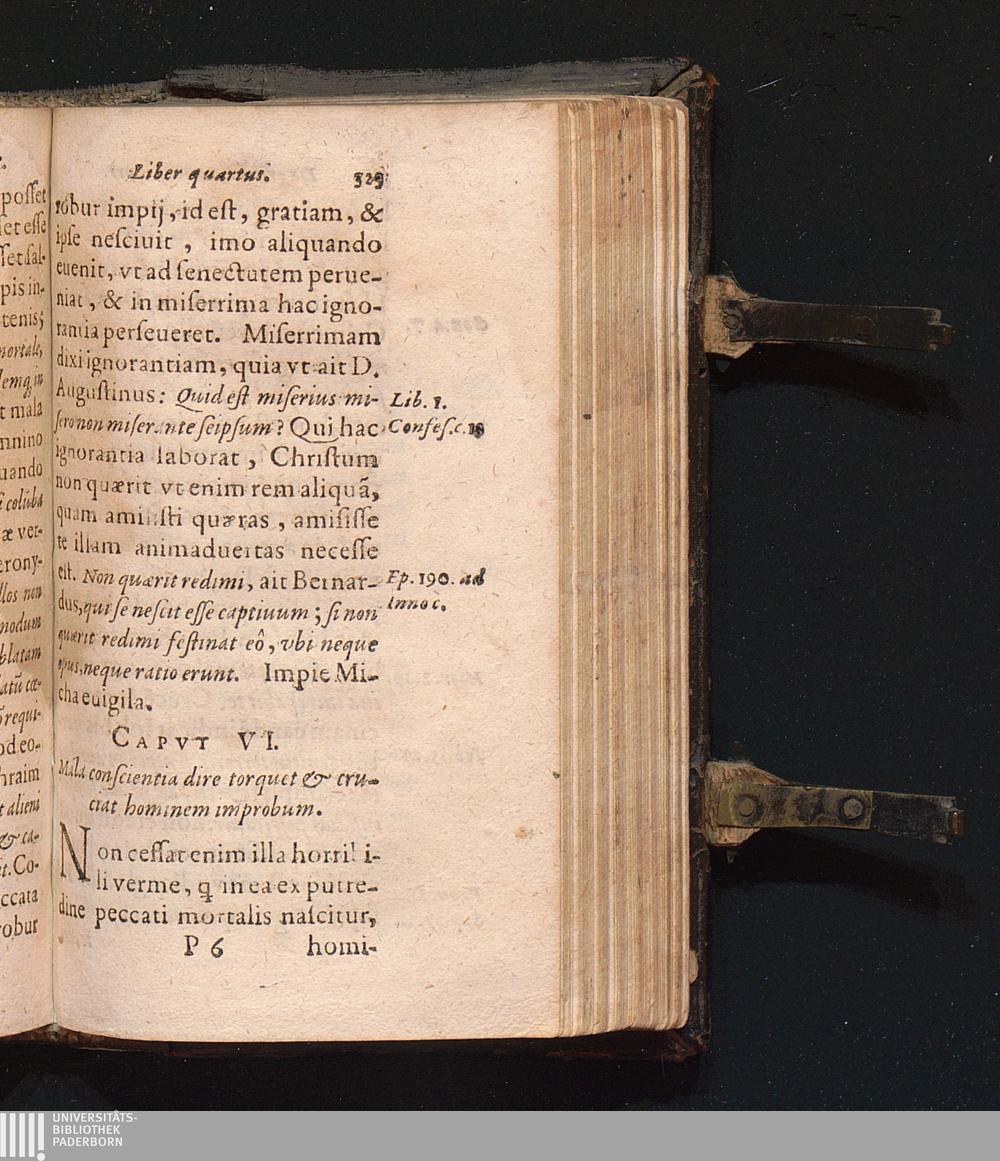 Liber quartus. 323
robur impij, id est, gratiam, &
ipse nesciuit, imo aliquando
euenit, vt ad senectutem perue-
niat, & in miserrima hac igno-
rantia perseueret. Miserrimam
dixi ignorantiam, quia vt ait D.
Augustinus: Quid est miserius mi-
sero non miserante seipsum? Qui hac
ignorantia laborat, Christum
non quærit vt enim rem aliquã,
quam amisisti quæras, amisisse
te illam animaduertas necesse
est. Non quærit redimi, ait Bernar-
dus, qui se nescit esse captiuum; si non
quærit redimi festinat eô, vbi neque
opus, neque ratio erunt. Impie Mi-
cha euigila.
Lib. 1.
Confes. c. 13
Ep. 190. ad
Innoc.
CAPVT VI.
Mala conscientia dire torquet & cru-
ciat hominem improbum.
Non cessat enim illa horribi-
li verme, q in ea ex putre-
dine peccati mortalis nascitur,
P 6 homi-
posset
et esse
set sal-
pis in-
tenis;
mortale,
demq; in
t mala
mnino
uando
i colũba
æ ver-
erony-
llos non
modum
blatam
atũ cæ-
requi-
od eo-
hraim
t alieni
& ca-
it. Co-
ccata
obur
UNIVERSITÄTS-
BIBLIOTHEK
PADERBORN